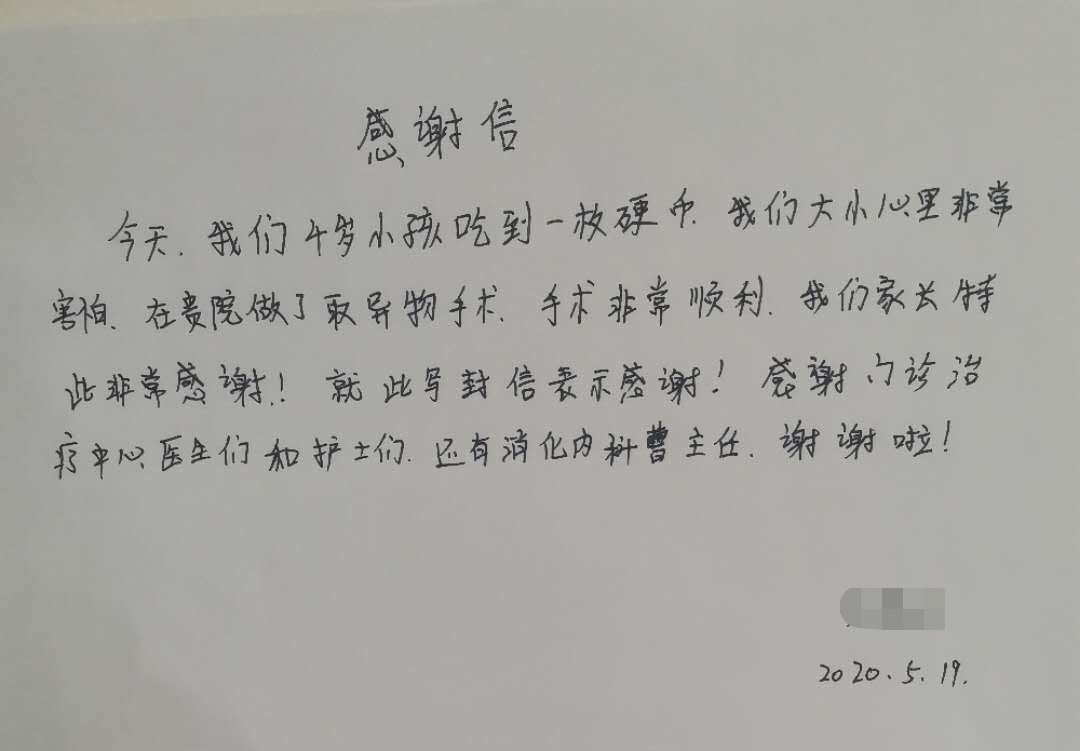 感谢信
今天.我们4岁小孩吃到一枚硬币.我们大小心里非常
害怕.在贵院做了取异物手术.手术非常顺利.我们家长特
此非常感谢!就此写封信表示感谢!感谢门诊治
疗中心医生们和护士们.还有消化内科曹主任.谢谢啦!
2020.5.19.